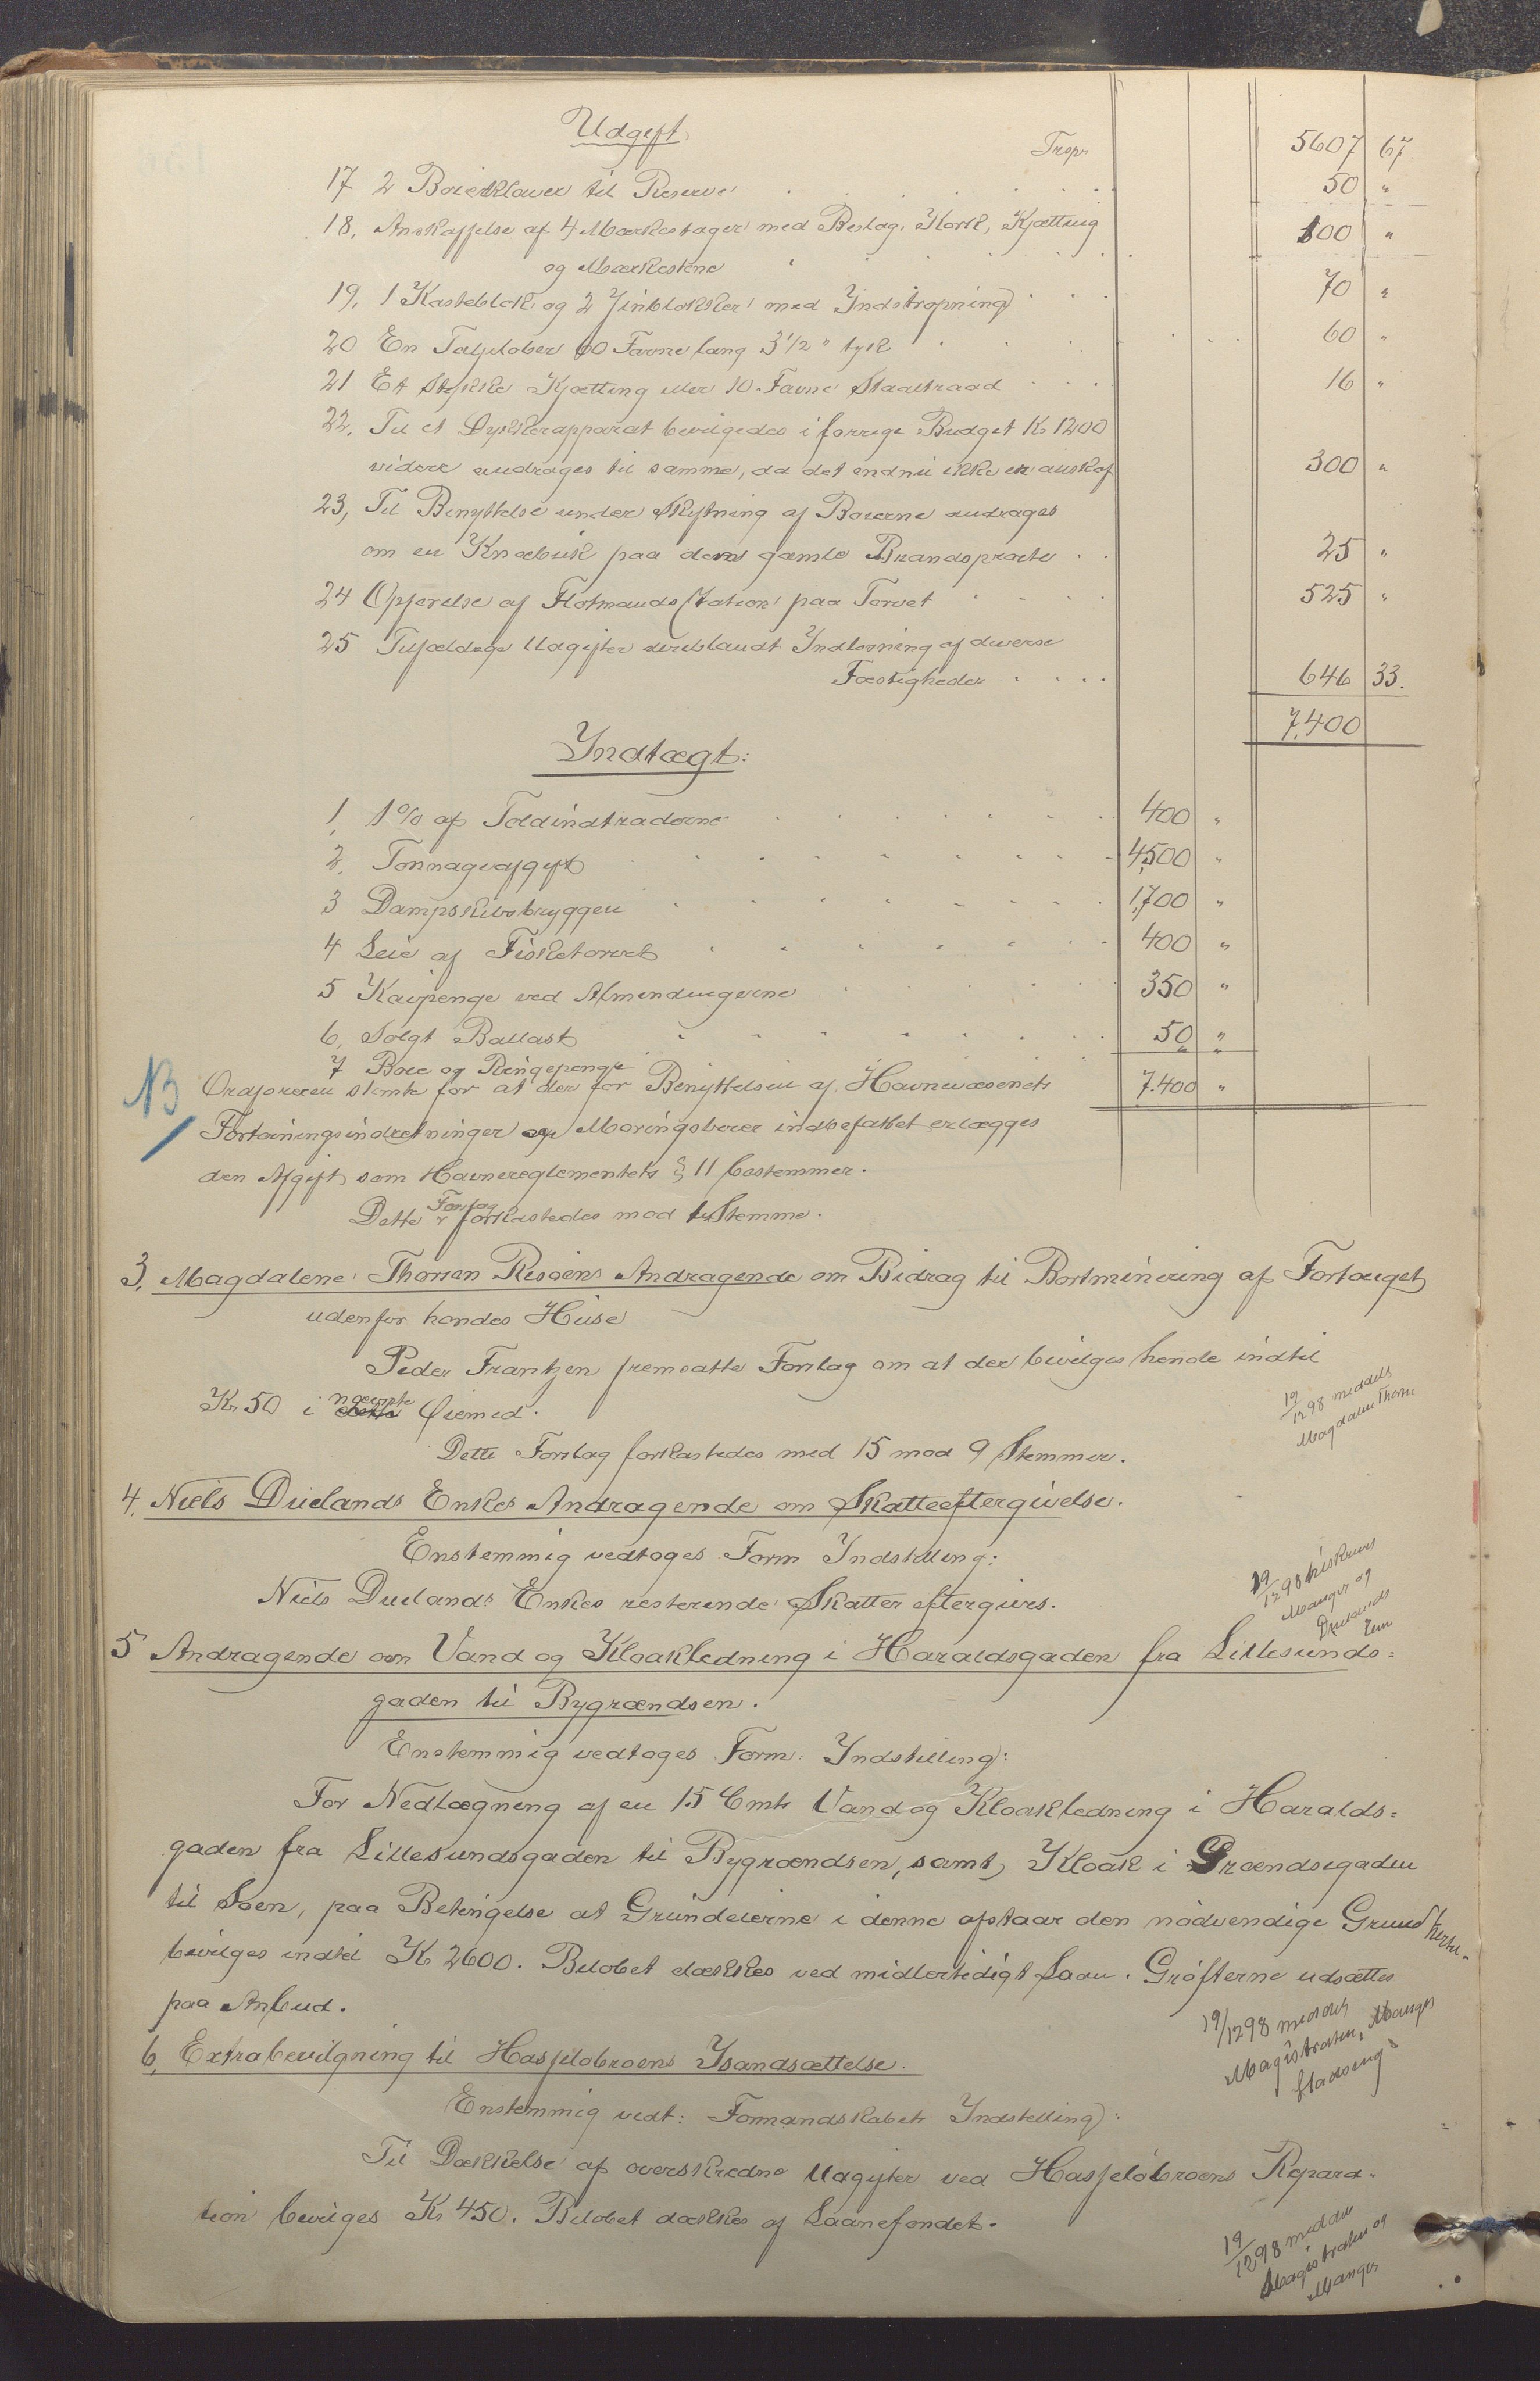 Udgift
Trsp. 5607 67.
17 2 Bøieklaver til Reserve 50 "
18, Anskaffelse af 4 Mærkestager med Beslag, Kork, Kjætting
og Mærkestene 100 "
19, 1 Kasteblok og 2 Jinblokker med Indstropning 70 "
20 En Taljeløber 60 Favne lang 3 1/2 " tyk 60 "
21 Et Stykke Kjætting eller 10 Favne Staaltraad 16 "
22, Til et Dykkerapparat bevilgedes i forrige Budget K. 1200
videre andrages til samme, da det endnu ikke er anskaf 300 "
23, Til Benyttelse under Flytning af Bøierne andrages
om en Knæbuk paa den gamle Brandsprøite 25 "
24 Opførelse af Flotmands Station paa Torvet 525 "
25 Tilfældige Udgifter deriblandt Indløsning af diverse
Fæstigheder 646 33.
7,400
Indtægt:
1, 1% af Toldindtraderne 400 "
2, Tonnageafgift 4,500 "
3 Dampskibsbryggen 1,700 "
4 Leie af Fisketorvet 400 "
5 Kaipenge ved Almendingerne 350 "
6, Solgt Ballast 50 "
7 Bøie og Ringepenge " "
NB Ordføreren stemte for at der for Benyttelsen af Havnevæsenets 7.400 "
Fortøiningsindretninger og Moringsbøier indbefattet erlægges
den Afgift som Havnereglementets § 11 bestemmer.
Dette Forslag forkastedes mod 1 Stemme.
3, Magdalene Thorsen Risøens Andragende om Bidrag til Bortminering af Fortauget
udenfor hendes Huse
Peder Frantzen fremsatte Forslag om at der bevilges hende indtil
Kr 50 i nævnte Øiemed.
19/12 98 meddelt
Magdalene Thorsen
Dette Forslag forkastedes med 15 mod 9 Stemmer.
4, Niels Duelands Enkes Andragende om Skatteeftergivelse.
Enstemmig vedtoges Form Indstilling:
Niels Duelands Enkes resterende Skatter eftergives.
19/12 98 tilskrevet
Manger og
Duelands
Enke
5 Andragende om Vand og Kloakledning i Haraldsgaden fra Lillesunds=
gaden til Bygrændsen.
Enstemmig vedtoges Form: Indstilling:
For Nedlægning af en 15 Cmts Vand og Kloakledning i Haralds=
gaden fra Lillesundsgaden til Bygrændsen, samt Kloak i Grændsegaden
til Søen, paa Betingelse at Grundeierne i denne afstaar den nødvendige Grund
bevilges indtil K 2600. Beløbet dækkes ved midlertidigt Laan. Grøfterne udsættes
paa Anbud.
19/12 98 meddelt
Magistraten, Manger
Stadsing.
6, Extrabevilgning til Hasseløbroens Istandsættelse.
Enstemmig vedt: Formandskabets Indstilling:
Til Dækkelse af overskredne Udgifter ved Hasseløbroens Repara-
tion bevilges Kr 450. Beløbet dækkes af Laanefondet.
19/12 98 meddelt
Magistraten og
Manger